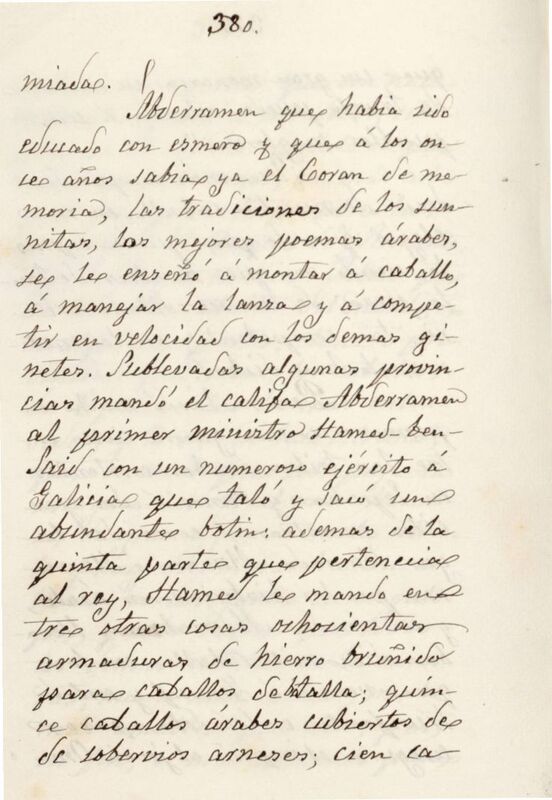 380.
miada.
Abderramen que habia sido
educado con esmero y que á los on-
ce años sabia ya el Coran de me-
moria, las tradiciones de los sun-
nitas, los mejores poemas árabes,
se le enseñó á montar á caballo,
á manejar la lanza y á compe-
tir en velocidad con los demas gi-
netes. Sublevadas algunas provin-
cias mandó el califa Abderramen
al primer ministro Hamed-ben-
Said con un numeroso ejército á
Galicia que taló y sacó un
abundante botin: además de la
quinta parte que pertenecia
al rey, Hamed le mandó en-
tre otras cosas ochocientas
armaduras de hierro bruñido
para caballos de talla; quin-
ce caballos árabes cubiertos de
de sobervios arneses; cien ca-